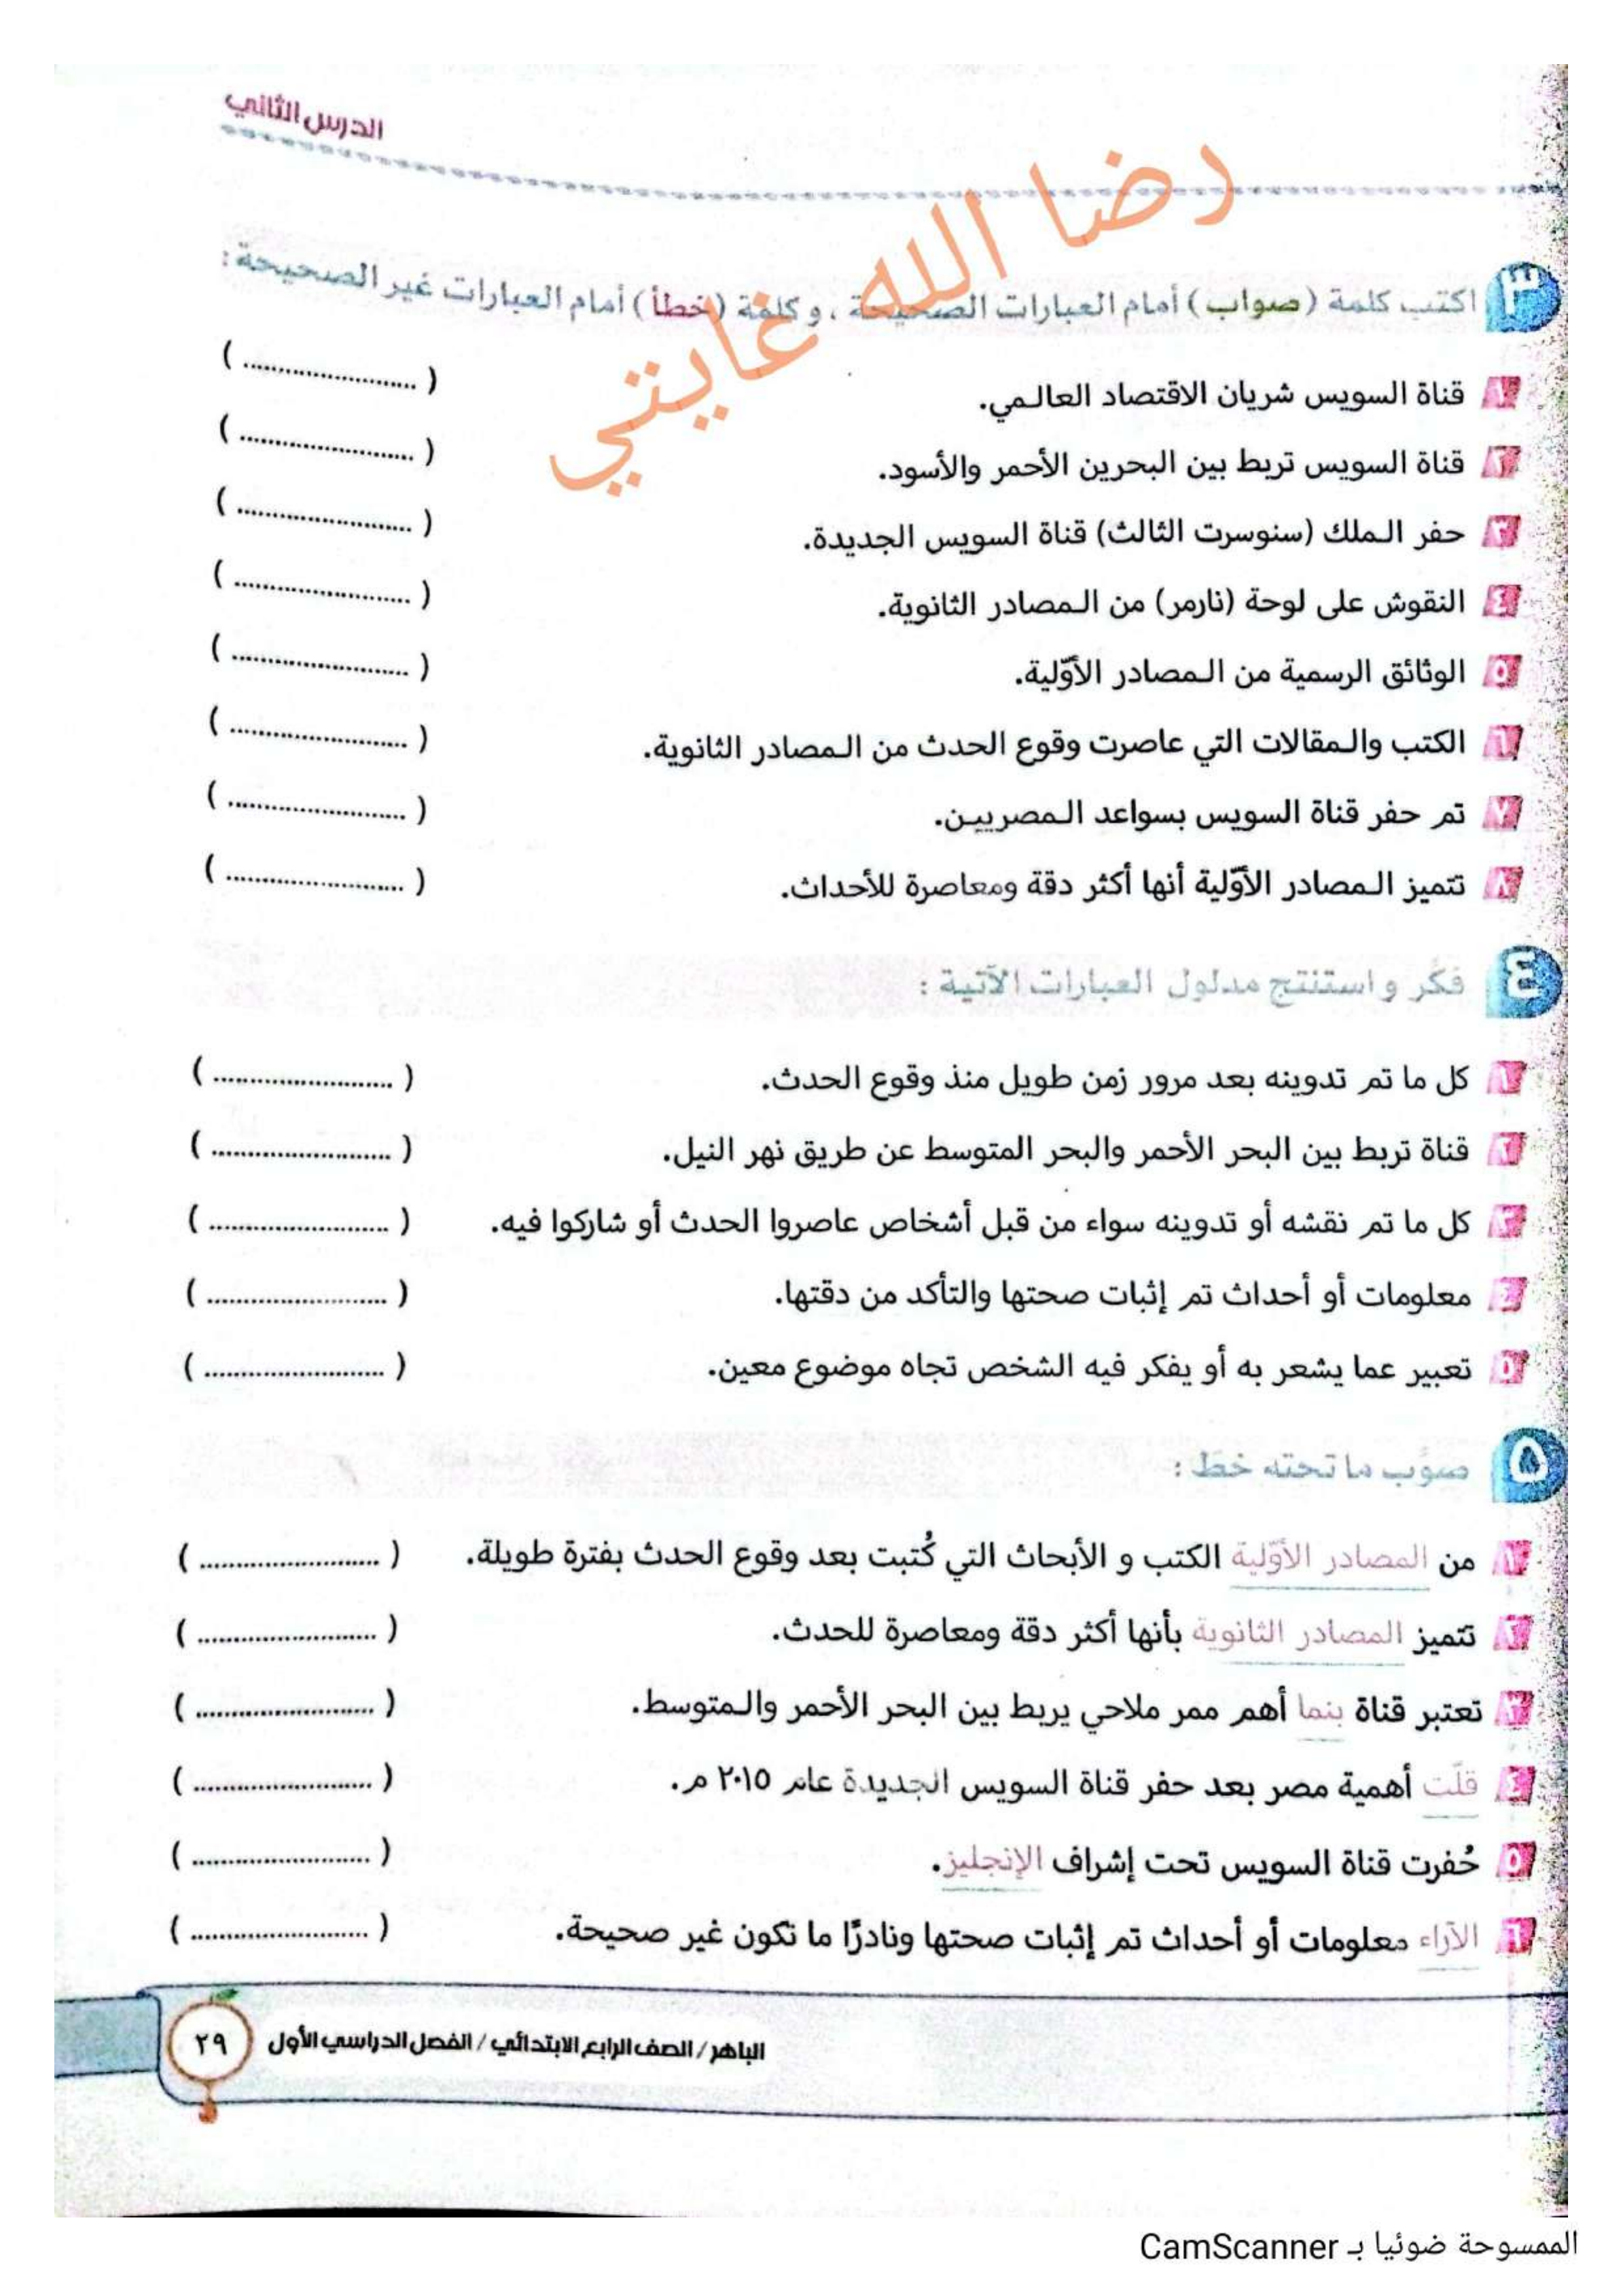 الدرس الثاني
رضا الله غايتي
٣ اكتب كلمة (صواب) أمام العبارات الصحيحة، وكلمة (خطأ) أمام العبارات غير الصحيحة:
١ قناة السويس شريان الاقتصاد العالمي. (........................)
٢ قناة السويس تربط بين البحرين الأحمر والأسود. (........................)
٣ حفر الملك (سنوسرت الثالث) قناة السويس الجديدة. (........................)
٤ النقوش على لوحة (نارمر) من المصادر الثانوية. (........................)
٥ الوثائق الرسمية من المصادر الأوّلية. (........................)
٦ الكتب والمقالات التي عاصرت وقوع الحدث من المصادر الثانوية. (........................)
٧ تم حفر قناة السويس بسواعد المصريين. (........................)
٨ تتميز المصادر الأوّلية أنها أكثر دقة ومعاصرة للأحداث. (........................)
٤ فكّر واستنتج مدلول العبارات الآتية:
١ كل ما تم تدوينه بعد مرور زمن طويل منذ وقوع الحدث. (........................)
٢ قناة تربط بين البحر الأحمر والبحر المتوسط عن طريق نهر النيل. (........................)
٣ كل ما تم نقشه أو تدوينه سواء من قبل أشخاص عاصروا الحدث أو شاركوا فيه. (........................)
٤ معلومات أو أحداث تم إثبات صحتها والتأكد من دقتها. (........................)
٥ تعبير عما يشعر به أو يفكر فيه الشخص تجاه موضوع معين. (........................)
٥ صوّب ما تحته خطّ:
١ من المصادر الأوّلية الكتب و الأبحاث التي كُتبت بعد وقوع الحدث بفترة طويلة. (........................)
٢ تتميز المصادر الثانوية بأنها أكثر دقة ومعاصرة للحدث. (........................)
٣ تعتبر قناة بنما أهم ممر ملاحي يربط بين البحر الأحمر والمتوسط. (........................)
٤ قلّت أهمية مصر بعد حفر قناة السويس الجديدة عام ٢٠١٥ م. (........................)
٥ حُفرت قناة السويس تحت إشراف الإنجليز. (........................)
٦ الآراء معلومات أو أحداث تم إثبات صحتها ونادرًا ما تكون غير صحيحة. (........................)
الباهر / الصف الرابع الابتدائي / الفصل الدراسي الأول ٢٩
الممسوحة ضوئيا بـ CamScanner